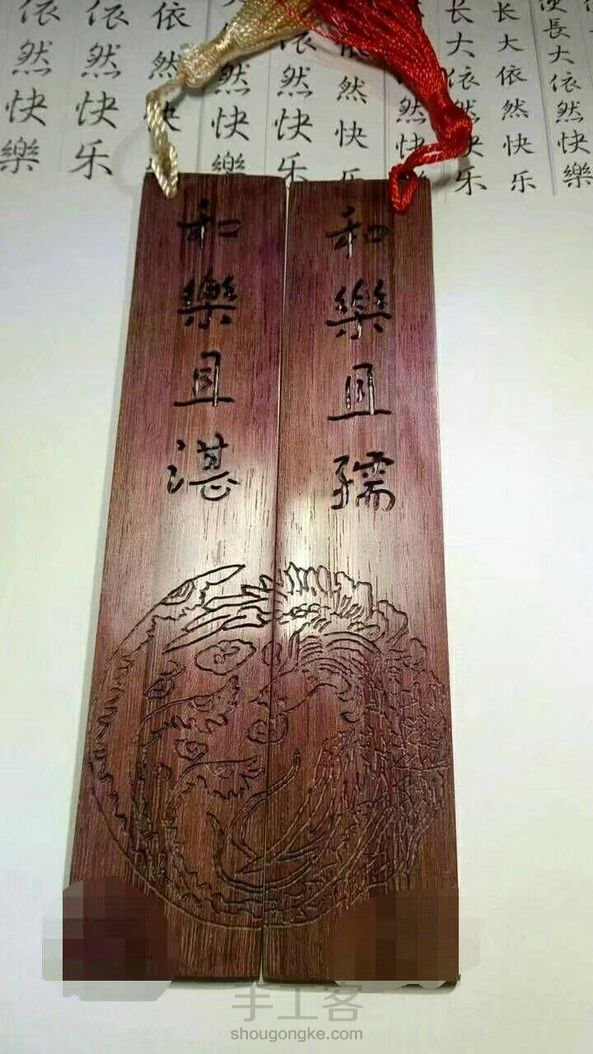 依然快樂
依然快乐
依然
然快樂
然快樂
然快乐
然快樂
长大依然快乐
长大依然快乐
長大依然快樂
和樂且湛
和樂且孺
手工客
shougongke.com